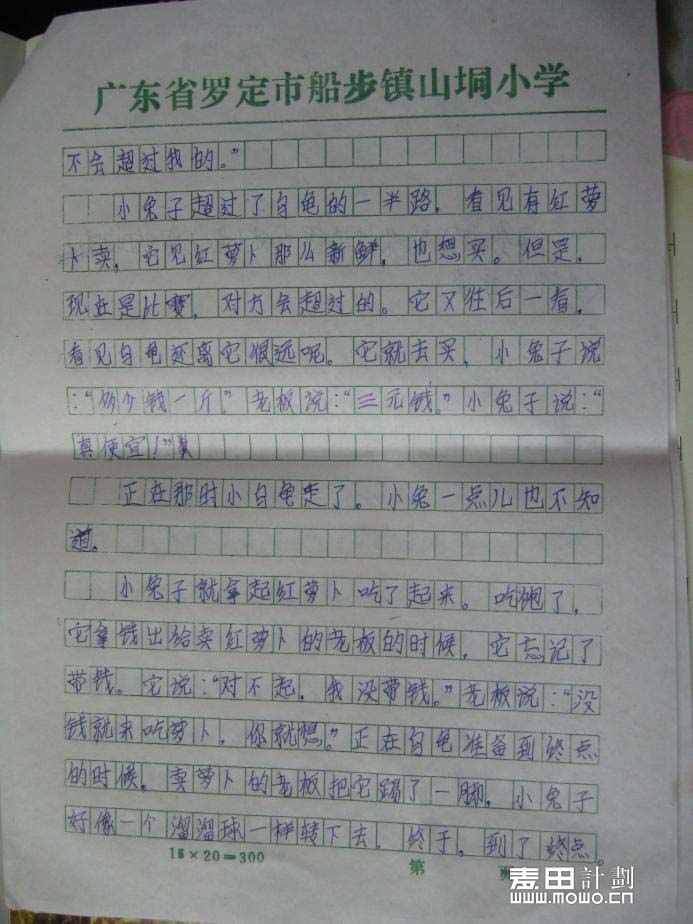 广东省罗定市船步镇山垌小学
不会超过我的。”
小兔子超过了白龟的一半路，看见有红萝
卜卖，它见红萝卜那么新鲜，也想买。但是，
现在是比赛，对方会超过的。它又往后一看，
看见白龟还离它很远呢。它就去买，小兔子说
：“多少钱一斤”老板说：“三元钱。”小兔子说：“
真便宜！”
正在那时小白龟走了。小兔一点儿也不知
道。
小兔子就拿起红萝卜吃了起来。吃饱了，
它拿钱出给卖红萝卜的老板的时候，它忘记了
带钱。它说：“对不起，我没带钱。”老板说：“没
钱就来吃萝卜，你就想。”正在白龟准备到终点
的时候，卖萝卜的老板把它踢了一脚，小兔子
好像一个溜溜球一样转下去，终于，到了终点。
15×20=300
第 页
麦田計劃
www.mowo.cn